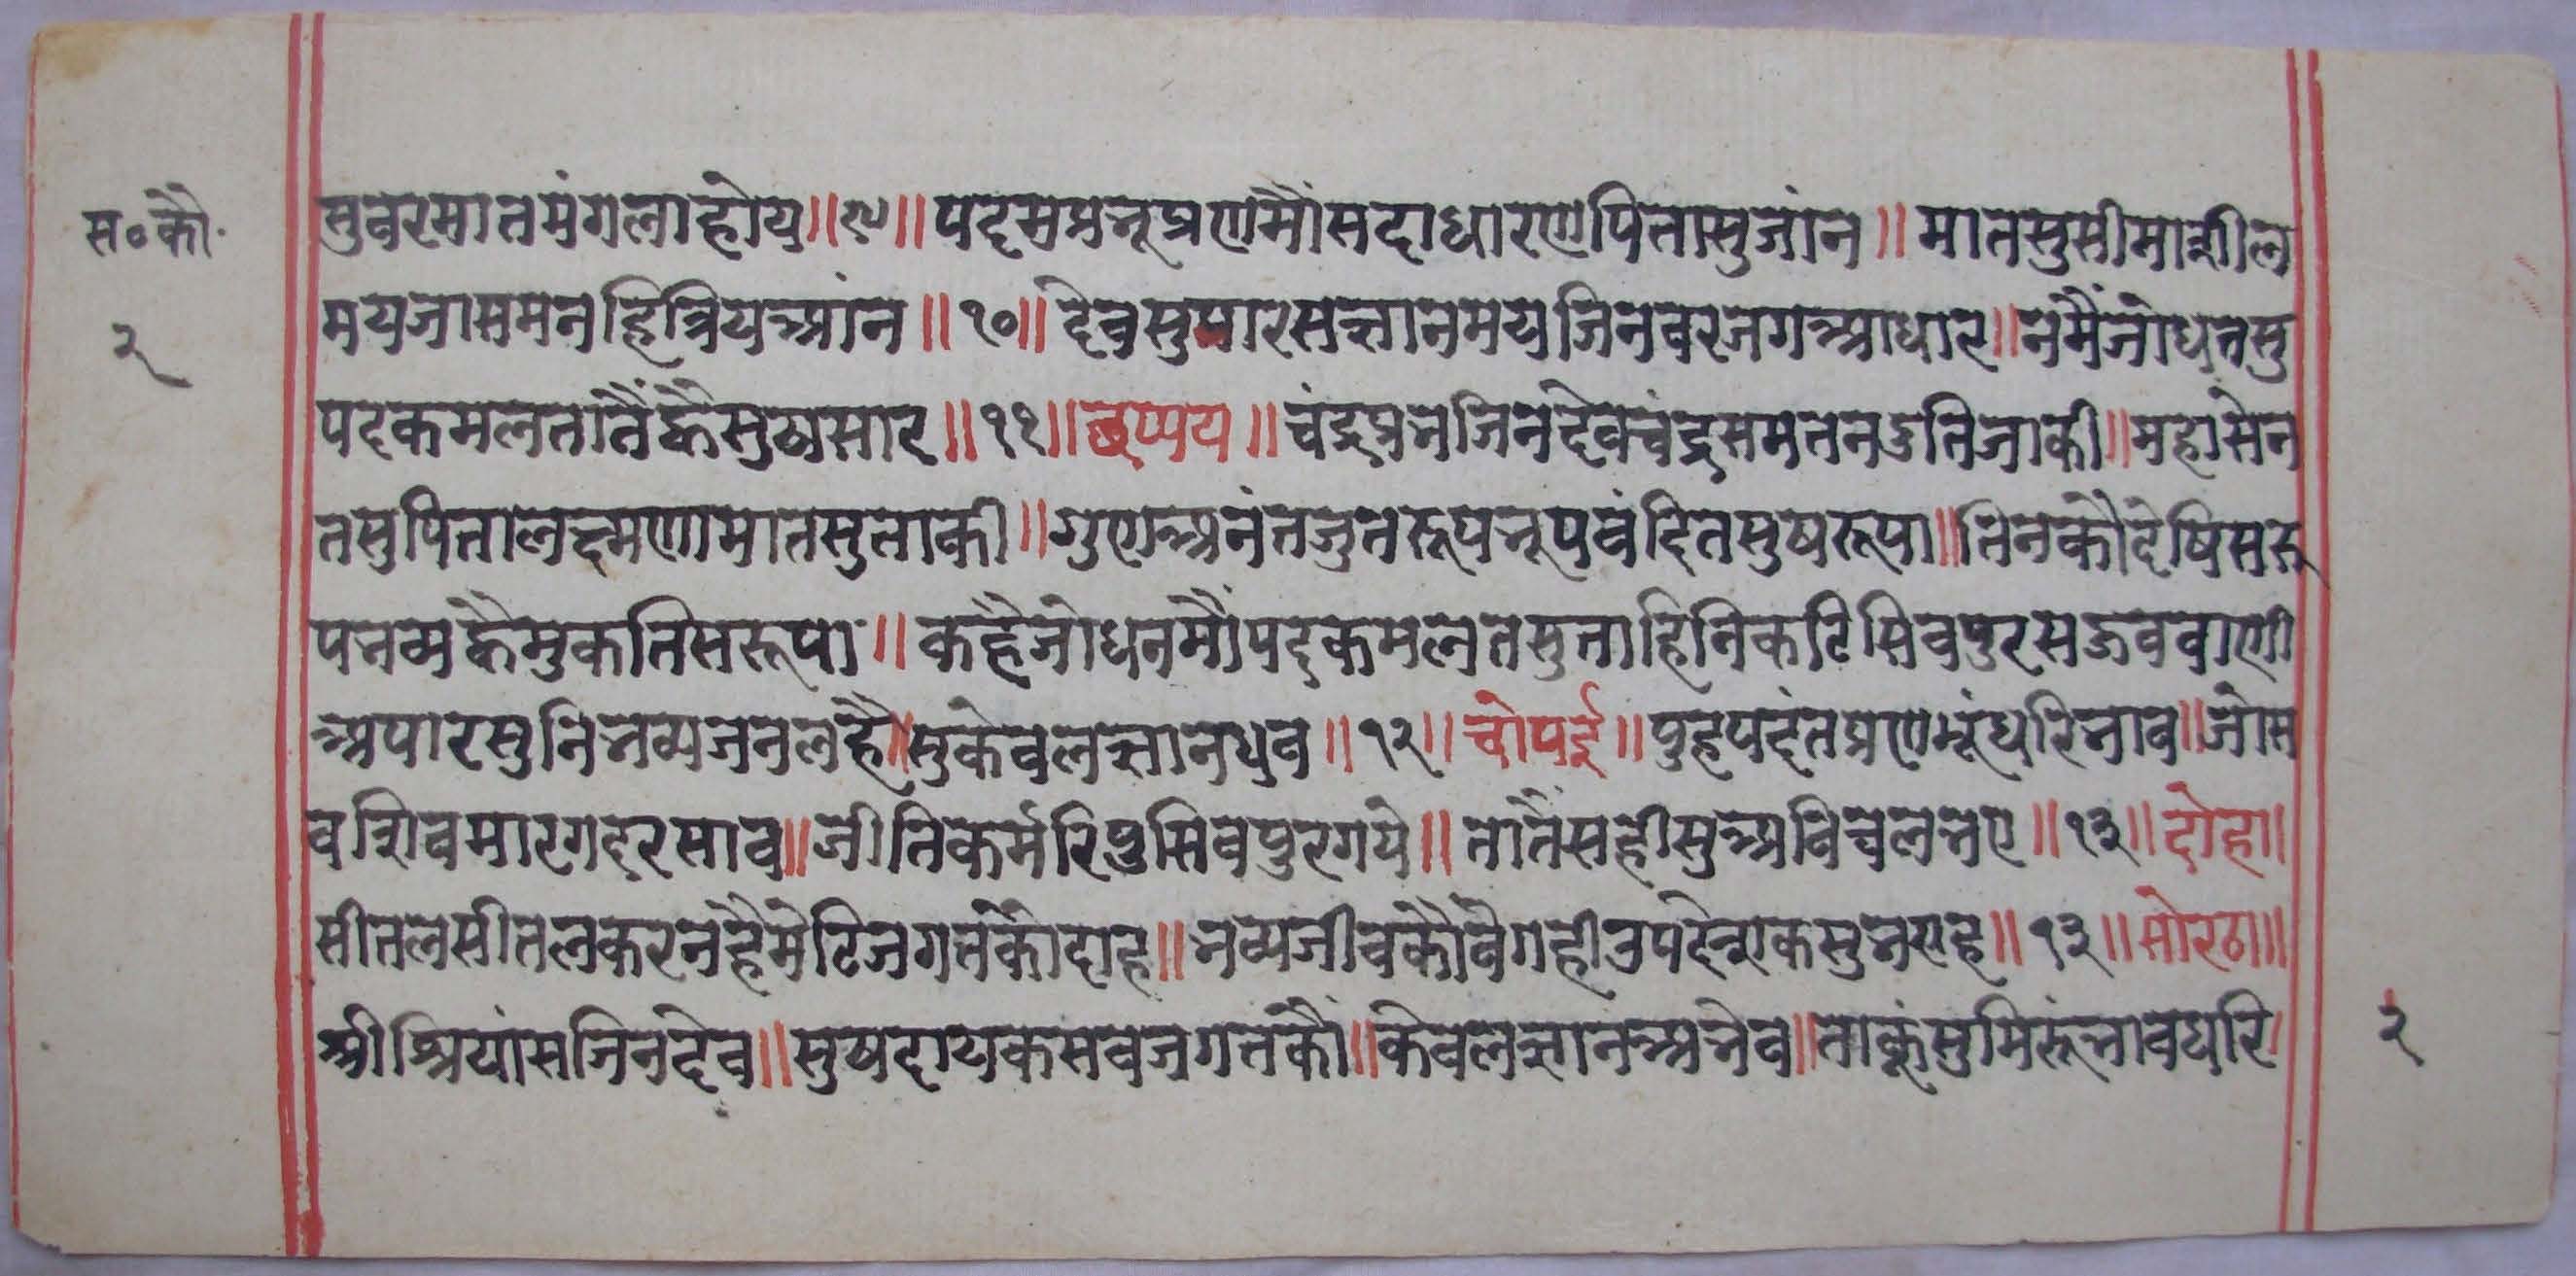 स॰कौ॰
२
सुवरमातमंगलाहोय॥९॥पद्मप्रभूप्रणमौंसदाधारणपितासुजांन॥मातसुसीमाशील
मयजासमनहित्रियआंन॥१०॥देवसुपारसज्ञानमयजिनवरजगआधार॥नमैंजोधतसु
पदकमलतातैंह्वैसुखसार॥११॥छप्पय॥चंद्रप्रभजिनदेवचंद्रसमतनदुतिजाकी॥महासेन
तसुपितालक्ष्मणामातसुताकी॥गुणअनंतजुतरूपभूपवंदितसुषरूपा॥तिनकौदेषिसरू
पभव्यह्वैमुकतिसरूपा॥कहैजोधनमौंपदकमलतसुताहिनिकटिसिवपुरसऊववाणी
अपारसुनिभव्यजनलहै॥सुकेवलज्ञानधुव॥१२॥चोपई॥पुहपदंतप्रणमूंधरिभाव॥जोस
वशिवमारगदरसाव॥जीतिकर्मरिपुसिवपुरगये॥तातैंसहीसुअविचलभए॥१३॥दोहा॥
सीतलसीतलकरनहैमेटिजगतकौदाह॥भव्यजीवकौवेगहीउपदेशकसुभराह॥१३॥सोरठा॥
श्रीश्रियांसजिनदेव॥सुषदायकसबजगतकौं॥केवलज्ञानअभेव॥ताकूंसुमिरूंभावधरि
२